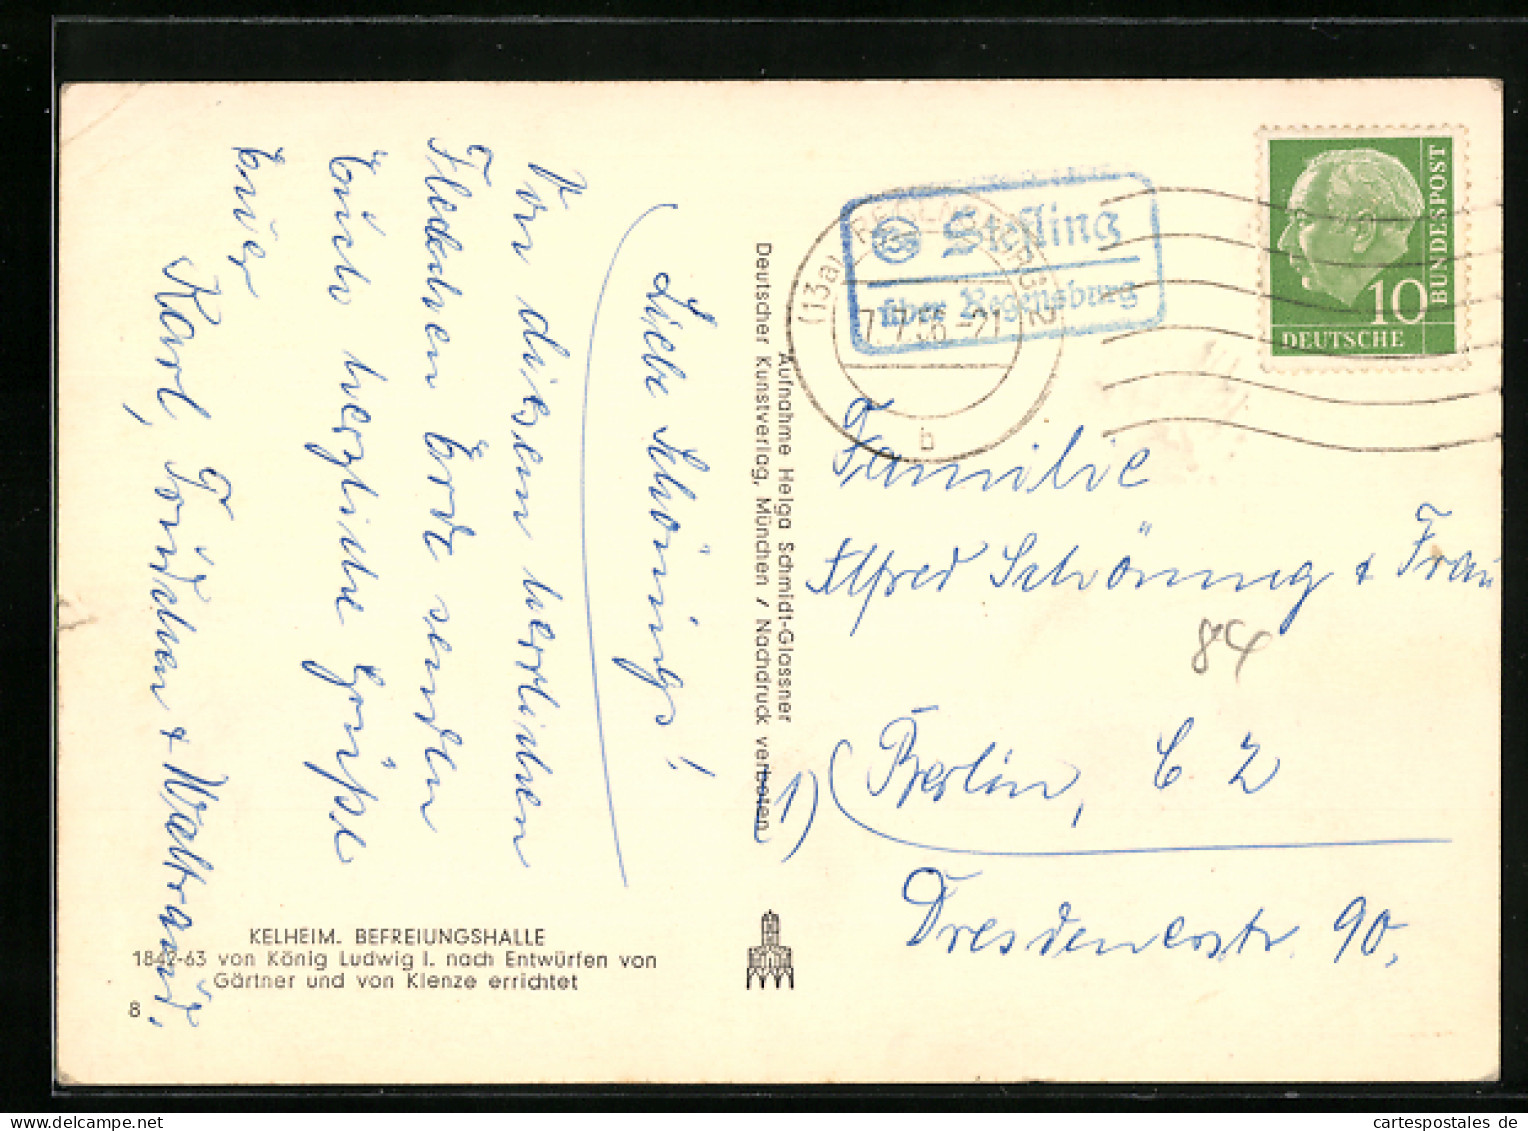 Liebe Schönings!
Von diesem herrlichen
Fleckchen Erde senden
Euch herzliche Grüße
Eure
Karl, Trudchen + Waltraud.
KELHEIM. BEFREIUNGSHALLE
1842-63 von König Ludwig I. nach Entwürfen von
Gärtner und von Klenze errichtet
8
Aufnahme Helga Schmidt-Glassner
Deutscher Kunstverlag, München / Nachdruck verboten
(13a) REGENSBURG 2
7.7.56-21
b
Stefling
über Regensburg
DEUTSCHE
BUNDESPOST
10
Familie
Alfred Schönning + Frau
84
1) Berlin, C 2
Dresdenerstr. 90.
cartespostales de